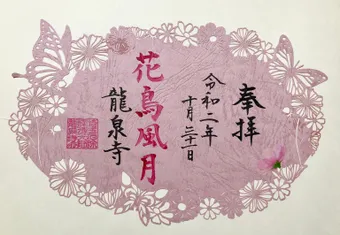 奉拝
令和二年
十月二十一日
花鳥風月
龍泉寺